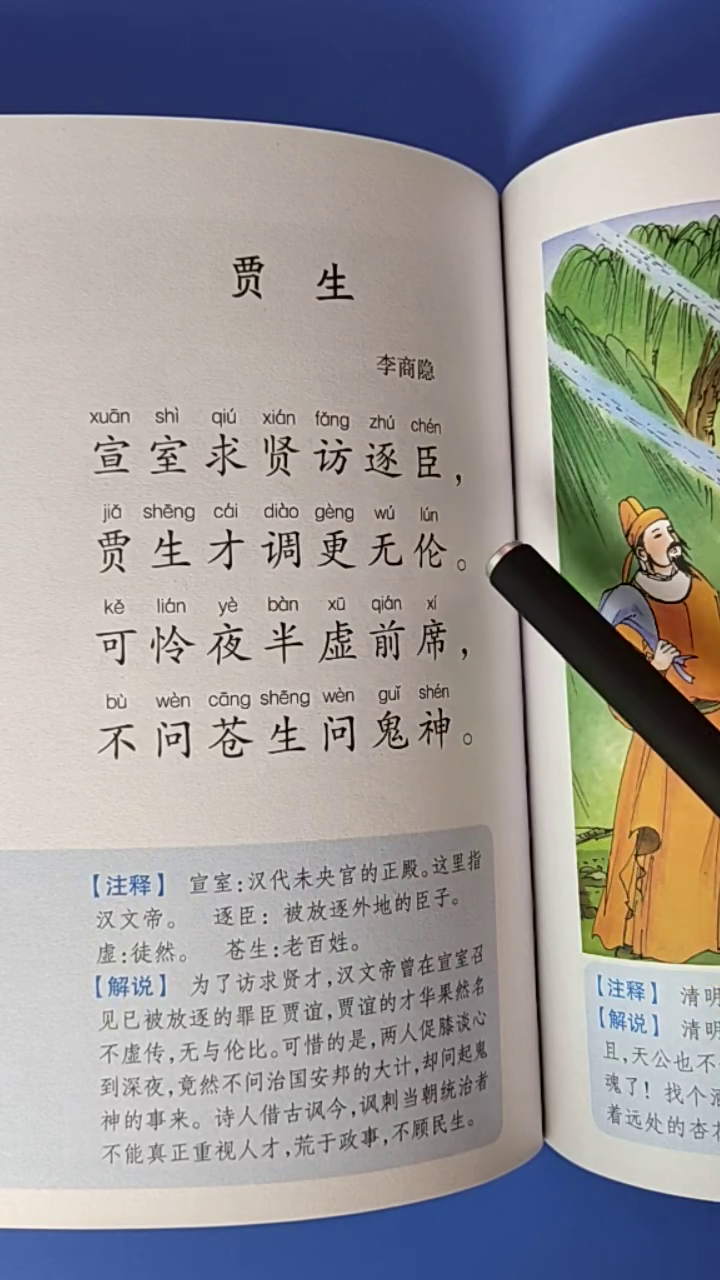 贾 生
李商隐
xuān shì qiú xián fǎng zhú chén
宣室求贤访逐臣，
jiǎ shēng cái diào gèng wú lún
贾生才调更无伦。
kě lián yè bàn xū qián xí
可怜夜半虚前席，
bù wèn cāng shēng wèn guǐ shén
不问苍生问鬼神。
【注释】 宣室：汉代未央宫的正殿。这里指
汉文帝。 逐臣：被放逐外地的臣子。
虚：徒然。 苍生：老百姓。
【解说】 为了访求贤才，汉文帝曾在宣室召
见已被放逐的罪臣贾谊，贾谊的才华果然名
不虚传，无与伦比。可惜的是，两人促膝谈心
到深夜，竟然不问治国安邦的大计，却问起鬼
神的事来。诗人借古讽今，讽刺当朝统治者
不能真正重视人才，荒于政事，不顾民生。
【注释】 清明
【解说】 清明
且，天公也不
魂了！找个酒
着远处的杏